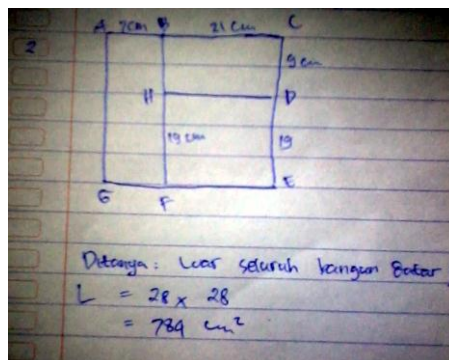 A 7cm B 21 cm C
2
9 cm
H D
19 cm 19
G F E
Ditanya: Luas seluruh bangun datar
L = 28 x 28
= 784 cm²